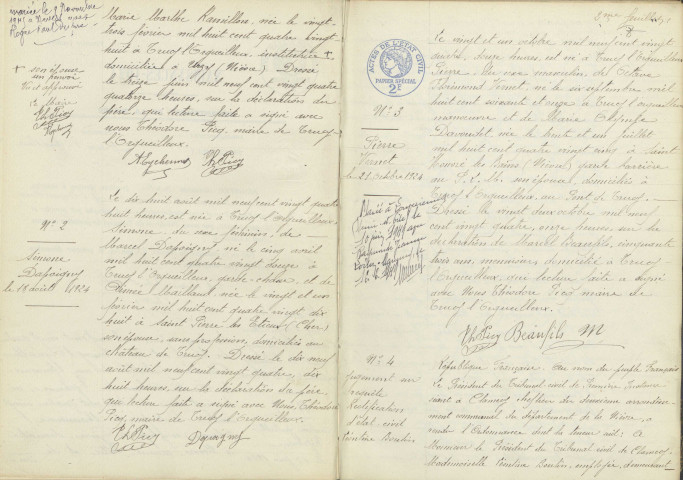 mariée le
Marie Marthe née le vingt-
trois février mil huit cent quatre vingt
huit à Trucy l'Orgueilleux, institutrice +
domiciliée à (Nièvre) Dressé
le treize juin mil neuf cent vingt quatre
quatorze heures, sur la déclaration du
père, qui lecture faite a signé avec
nous Théodore Picq, maire de Trucy
l'Orgueilleux.
+ son épouse
Vu et approuvé
Le Maire
Th Picq
Th Picq
N° 2
Simone
Dapoigny
le 18 août 1924
Le dix huit août mil neuf cent vingt quatre
huit heures, est née à Trucy l'Orgueilleux
Simone du sexe féminin, de
Marcel Dapoigny né le cinq avril
mil huit cent quatre vingt douze à
Trucy l'Orgueilleux, garde-chasse, et de
née le vingt et un
février mil huit cent quatre vingt dix
huit à Saint Pierre les Etieux (Cher)
son épouse, sans profession, domiciliés au
château de Trucy. Dressé le dix neuf
août mil neuf cent vingt quatre, dix
huit heures, sur la déclaration du père
qui lecture faite a signé avec Nous Théodore
Picq, maire de Trucy l'Orgueilleux.
Th Picq Dapoigny
2me feuillet
ACTES DE L'ÉTAT CIVIL
PAPIER SPÉCIAL
2F
N° 3
Pierre
Vernet
le 21 octobre 1924
Le vingt et un octobre mil neuf cent vingt
quatre, douze heures, est né à Trucy l'Orgueilleux
Pierre du sexe masculin, de Octave
Vernet, né le six septembre mil
huit cent soixante et seize à Trucy l'Orgueilleux
manoeuvre et de Marie
née le trente et un juillet
mil huit cent quatre vingt cinq à Saint
Honoré les Bains (Nièvre) garde barrière
au P. L. M. son épouse, domiciliés à
Trucy l'Orgueilleux, au Pont de Trucy.
Dressé le vingt deux octobre mil neuf
cent vingt quatre, onze heures, sur la
déclaration de Beaufils, cinquante
trois ans, menuisier, domicilié à Trucy-
l'Orgueilleux, qui lecture faite a signé
avec Nous Théodore Picq maire de
Trucy l'Orgueilleux.
Marié à
Th Picq Beaufils
N° 4
Jugement en
rectification
d'état civil
République Française. Au nom du peuple Français
Le Président du Tribunal civil de Première Instance
séant à Clamecy, chef-lieu du arrondisse-
ment communal du département de la Nièvre, a
rendu l'Ordonnance dont la teneur suit: A
Monsieur le Président du Tribunal civil de Clamecy
Mademoiselle employée, demeurant